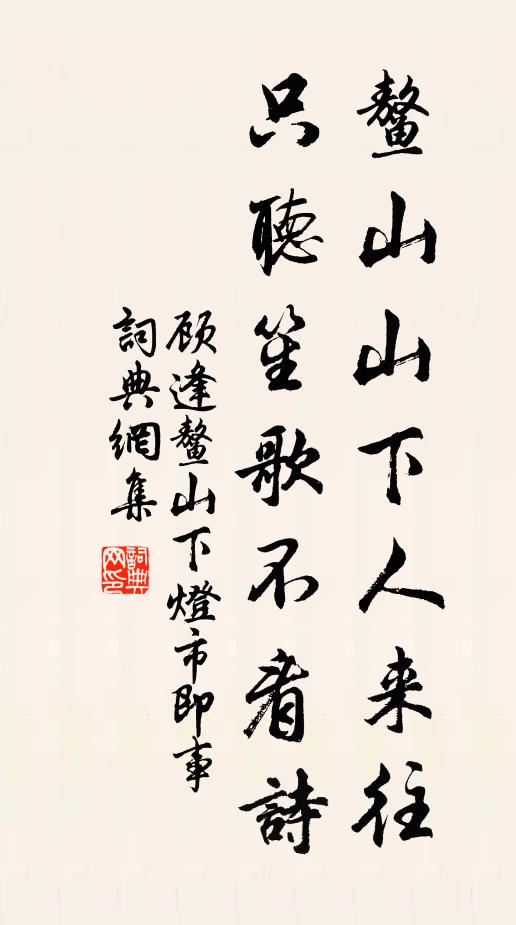 鳌山山下人来往
只聽笙歌不看詩
顾逢鳌山下燈市即事
詞典網集
詞典网印